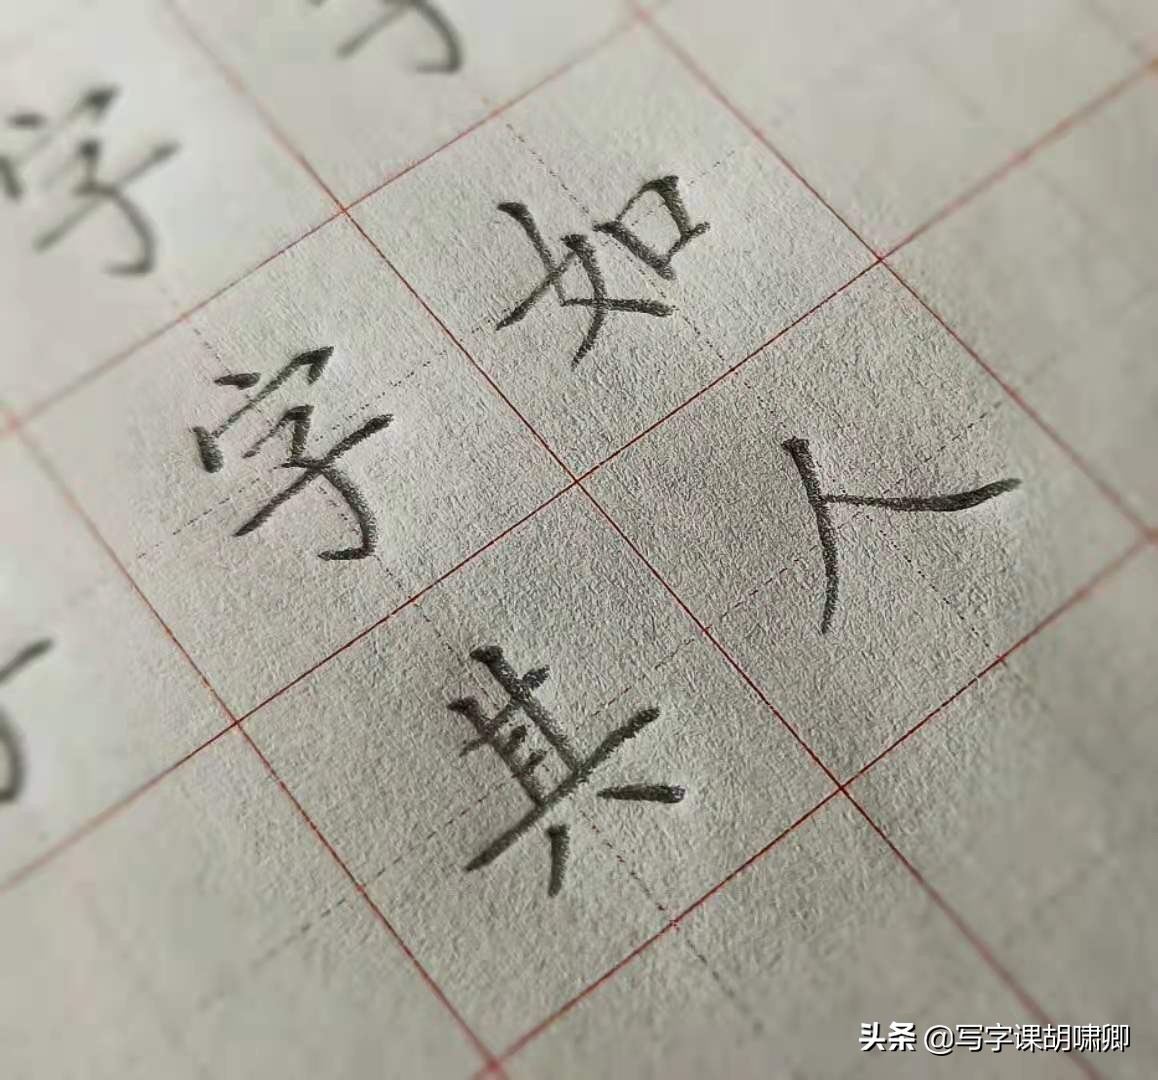 字
字如
其人
头条 @写字课胡啸卿